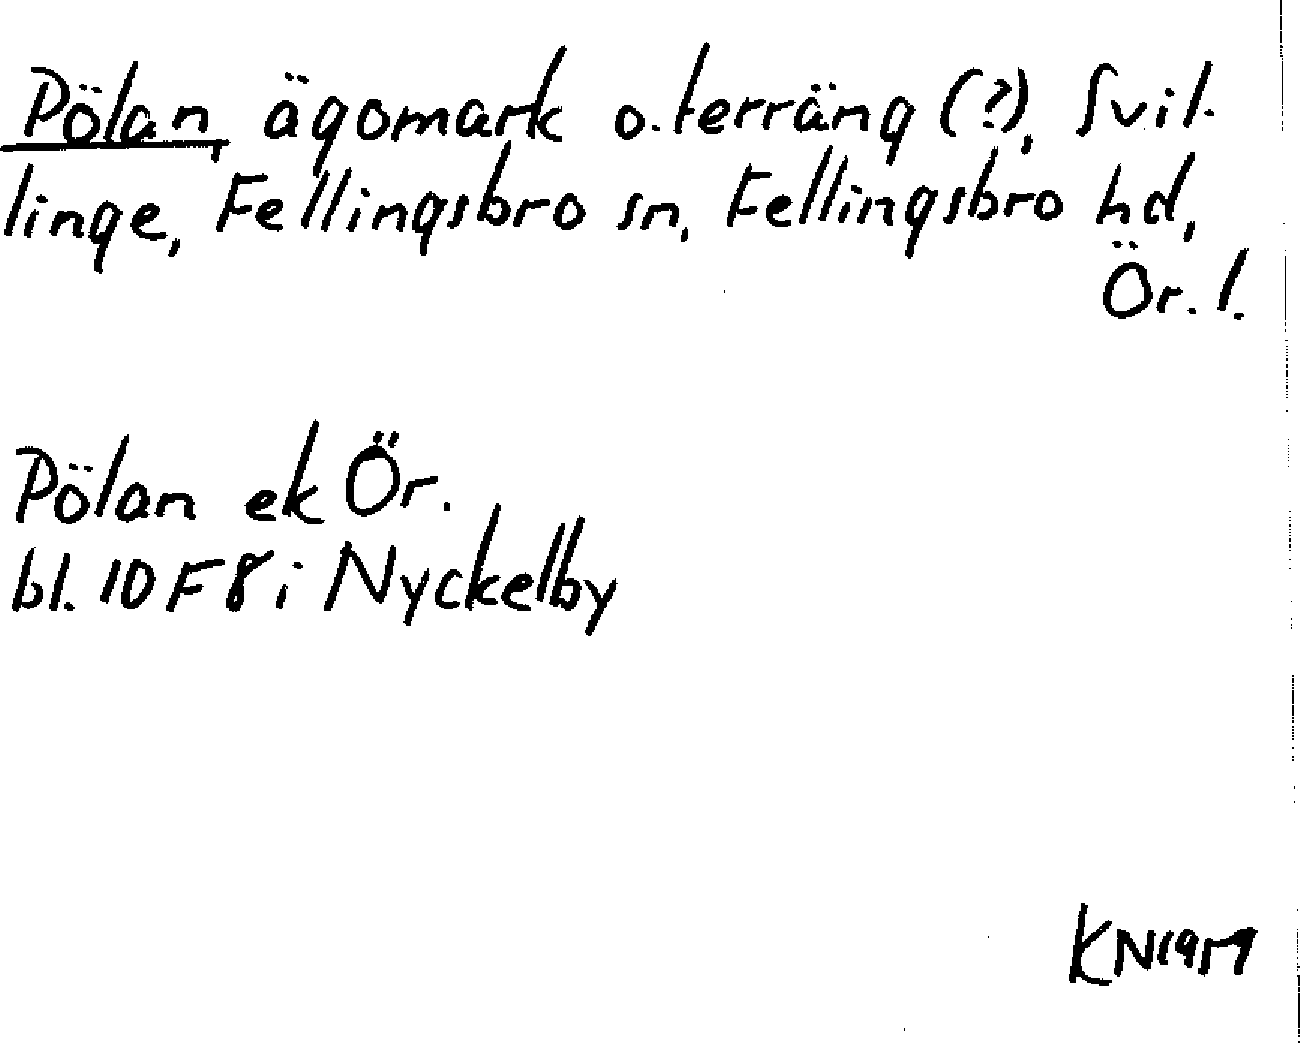 Pölan, ägomark o. terräng (?), Svit-
linge, Fellingsbro sn, Fellingsbro hd,
Ör. l.
Pölan ek Ör.
bl. 10 F 8 i Nyckelby